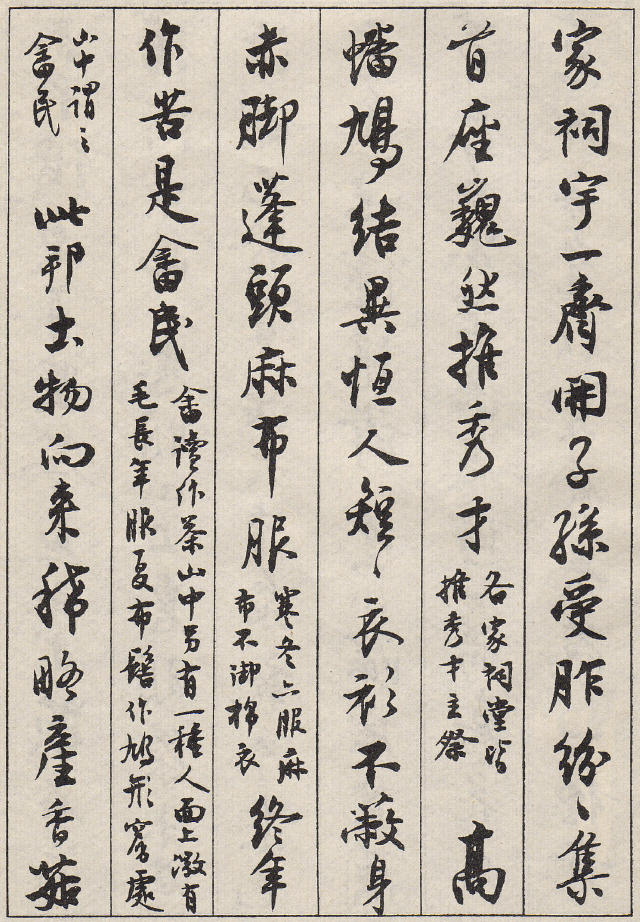 家祠宇一齊開子孫受胙紛〻集
首座巍然推秀才
各家祠堂皆
推秀才主祭
高
幡鳩結異恒人短〻衣衫不蔽身
赤脚蓬頭麻布服
寒冬亦服麻
布不御棉衣
終年
作苦是畲民
畲讀作茶山中另有一種人面上微有
毛長年服夏布髻作鳩形窮處
山中謂之
畲民
此邦土物向來稀略產香菇